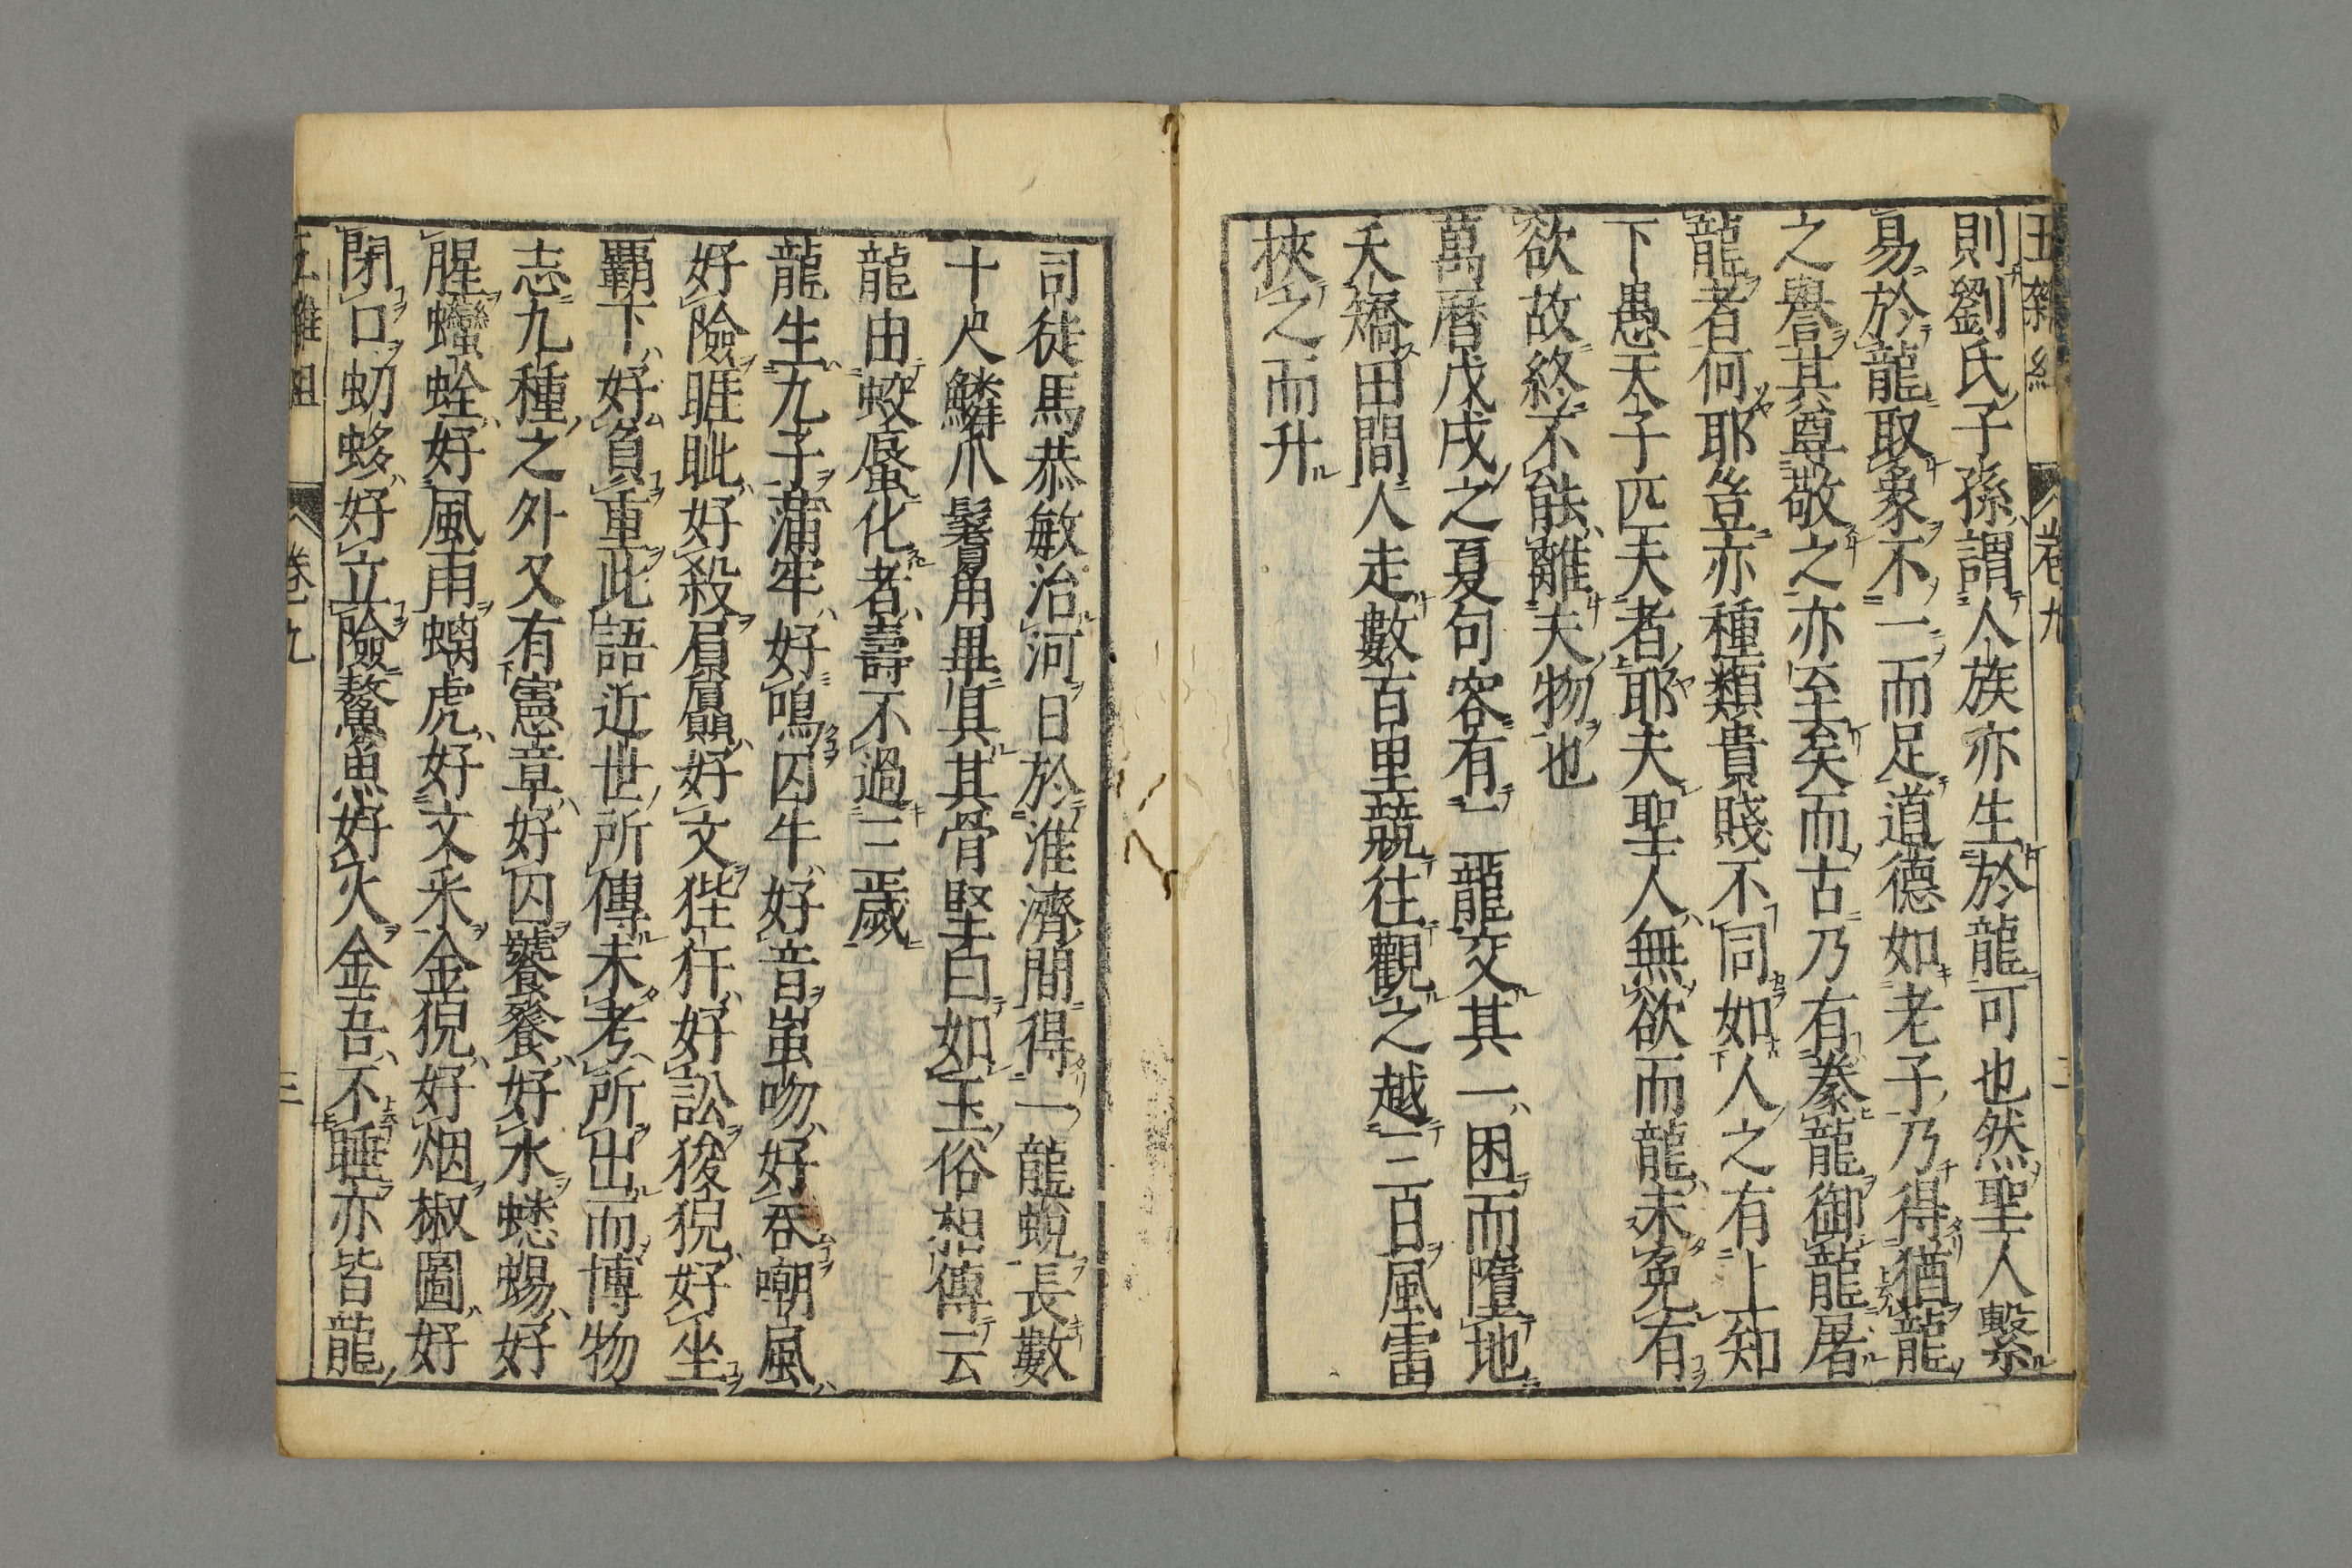 五雜組 卷九 二
則劉氏子孫謂人族亦生於龍可也然聖人繫
易於龍取象不一而足道德如老子乃得猶龍
之譽其尊敬之亦至矣而古乃有豢龍御龍屠
龍者何耶豈亦種類貴賤不同如人之有上知
下愚天子匹夫者耶夫聖人無欲而龍未免有
欲故終不能離夫物也
萬曆戊戌之夏句容有二龍交其一困而墮地
夭矯田間人走數百里競往觀之越三日風雷
挾之而升
司徒馬恭敏治河日於淮濟間得一龍蛻長數
十尺鱗爪鬐角畢具其骨堅白如玉俗相傳云
龍由蛟蜃化者壽不過三歲
龍生九子蒲牢好鳴囚牛好音蚩吻好吞嘲風
好險睚眦好殺屓贔好文狴犴好訟狻猊好坐
霸下好負重此語近世所傳未考所出而博物
志九種之外又有憲章好囚饕餮好水蟋蜴好
腥䘎蛭好風雨螭虎好文采金猊好烟椒圖好
閉口虭蛥好立險鰲魚好火金吾不睡亦皆龍
五雜組 卷九 三